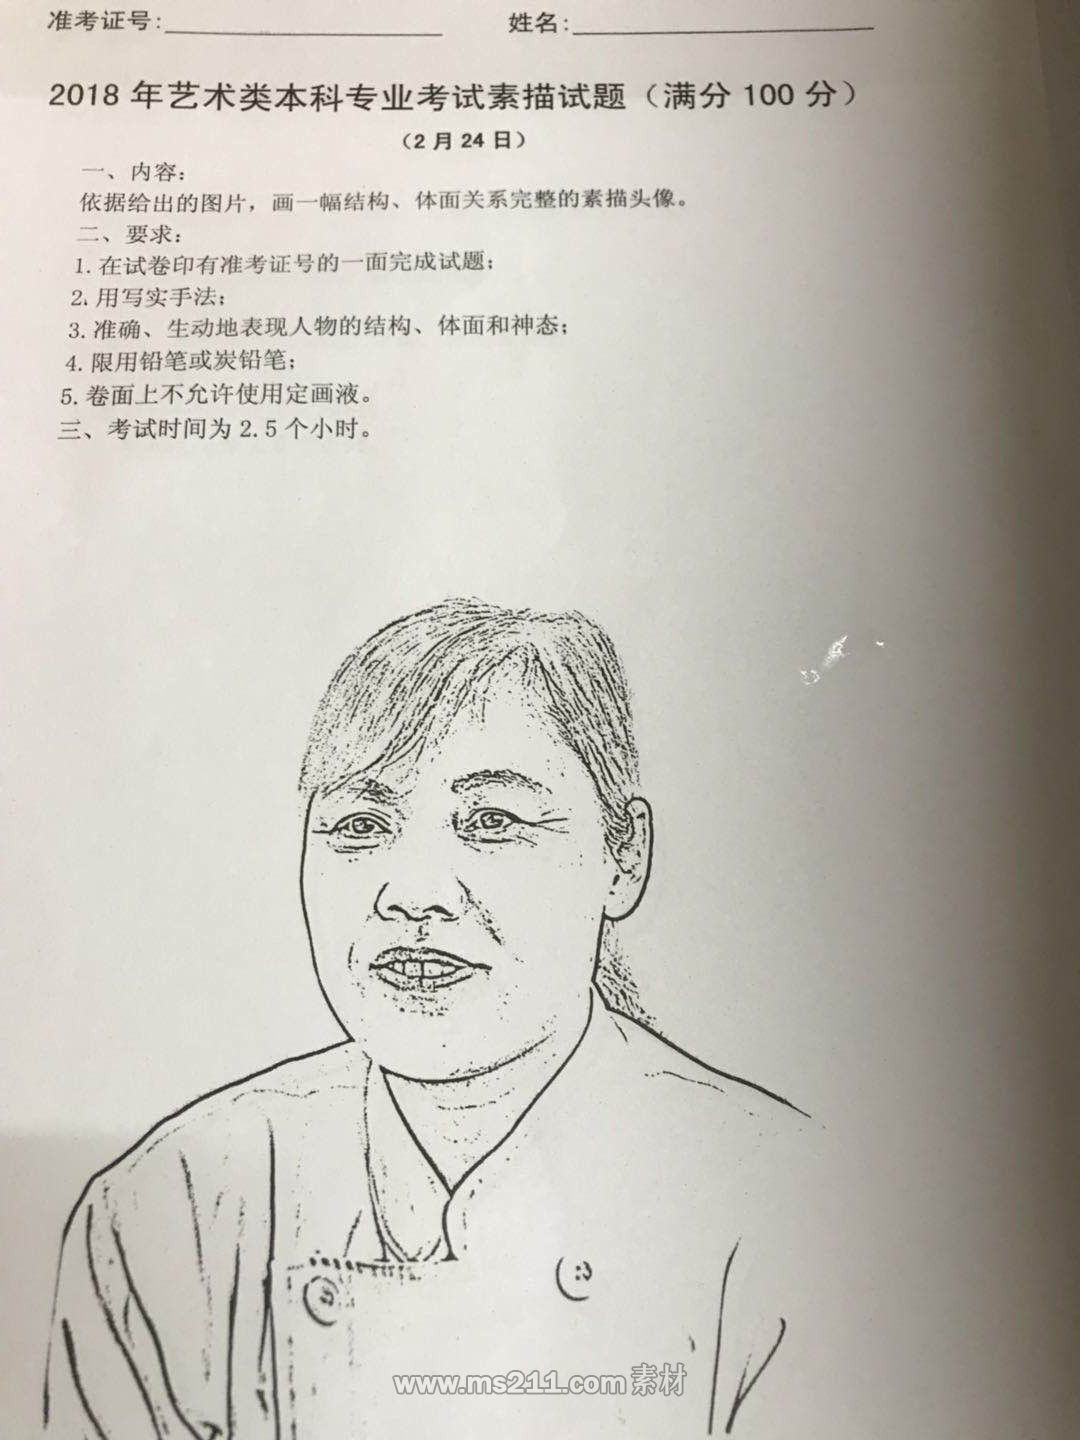 准考证号:
姓名:
2018 年艺术类本科专业考试素描试题（满分 100 分）
（2 月 24 日）
一、内容:
依据给出的图片，画一幅结构、体面关系完整的素描头像。
二、要求:
1. 在试卷印有准考证号的一面完成试题;
2. 用写实手法;
3. 准确、生动地表现人物的结构、体面和神态;
4. 限用铅笔或炭铅笔;
5. 卷面上不允许使用定画液。
三、考试时间为 2.5 个小时。
www.ms211.com 素材